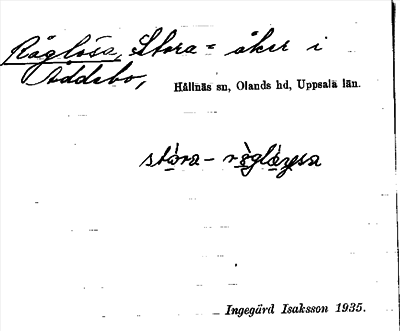 Råglösa, Stora = åker i
Addebo,
Hållnäs sn, Olands hd, Uppsala län.
stòra-
Ingegärd Isaksson 1935.